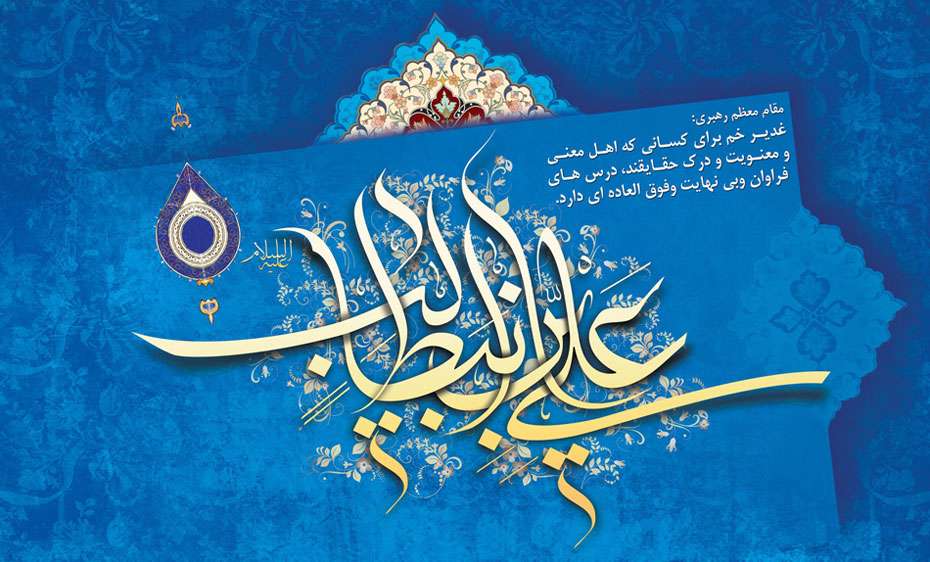 مقام معظم رهبری:
غدیر خم برای کسانی که اهل معنی
و معنویت و درک حقایقند، درس های
فراوان وبی نهایت وفوق العاده ای دارد.
علی بن ابیطالب
علیه السلام